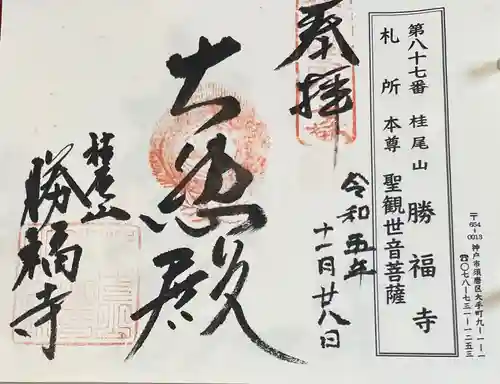 第八十七番 桂尾山 勝福寺
札所本尊 聖観世音菩薩
〒654-0013 神戸市須磨区大手町九-一-一
☎〇七八-七三一-一二五三
奉拝
令和五年
十一月廿八日
大悲殿
桂尾山
勝福寺